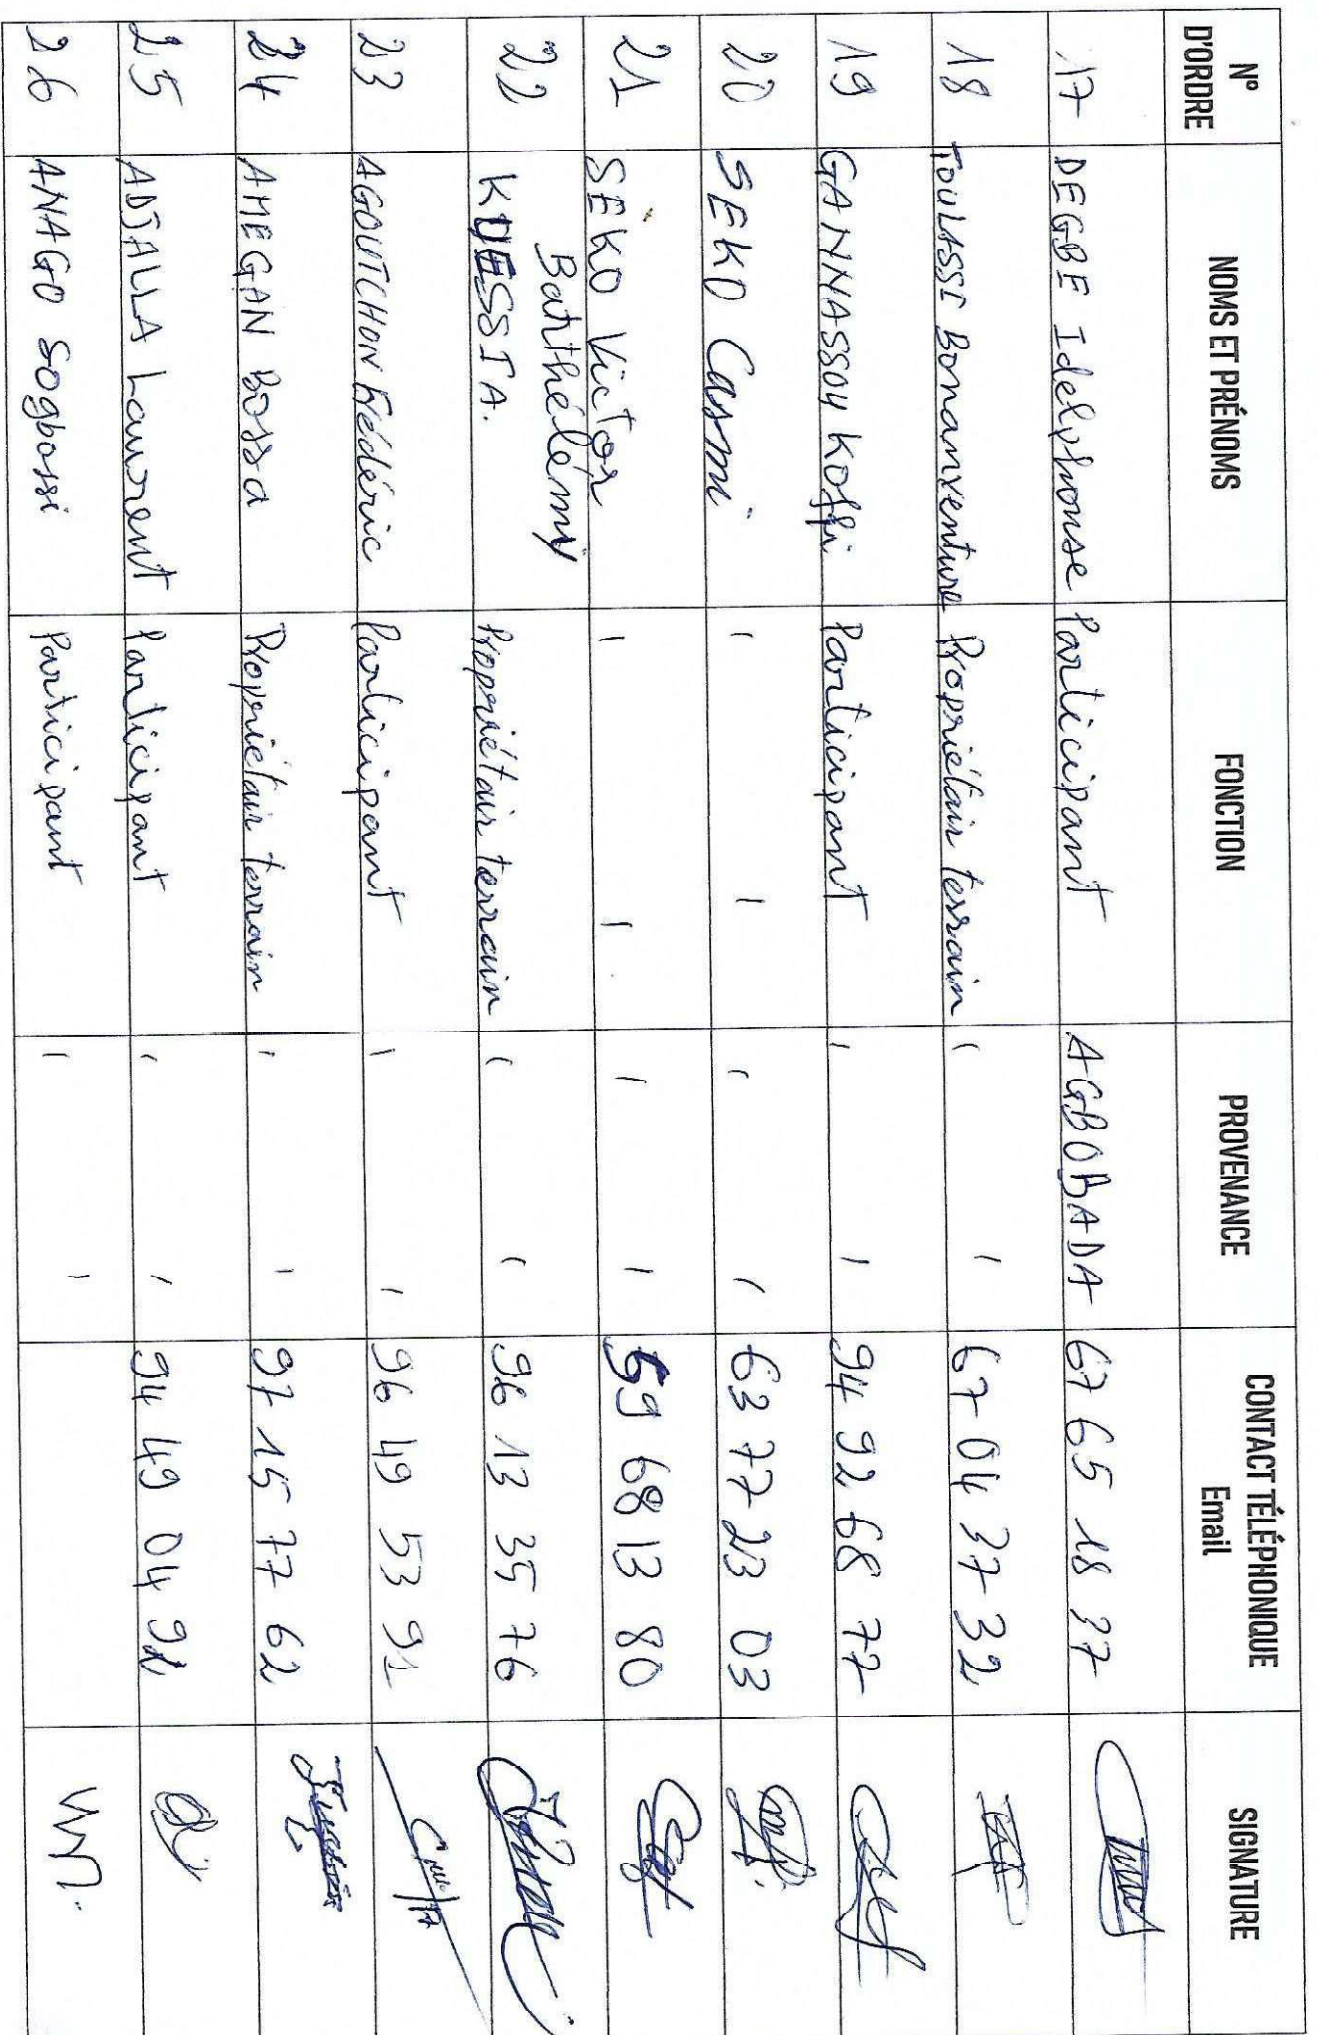 N° D'ORDRE NOMS ET PRÉNOMS FONCTION PROVENANCE CONTACT TÉLÉPHONIQUE Email SIGNATURE
17 DEGBE Idelphonse Participant AGBOBADA 67 65 18 37
18 TOULASSI Bonanventure Propriétair terrain " 67 04 37 32
19 GANNASSOU Koffi Participant " 94 92 68 77
20 SEKO Casmi " " 63 77 23 03
21 SEKO Victor " " 59 68 13 80
22 KUESSI A. Barthélémy Propriétair terrain " 96 13 35 76
23 AGOUTCHON Frédéric Participant " 96 49 53 91
24 AMEGAN Bossa Propriétair terrain " 97 15 77 62
25 ADJALLA Laurent Participant " 94 49 04 92
26 ANAGO Sogbossi Participant "